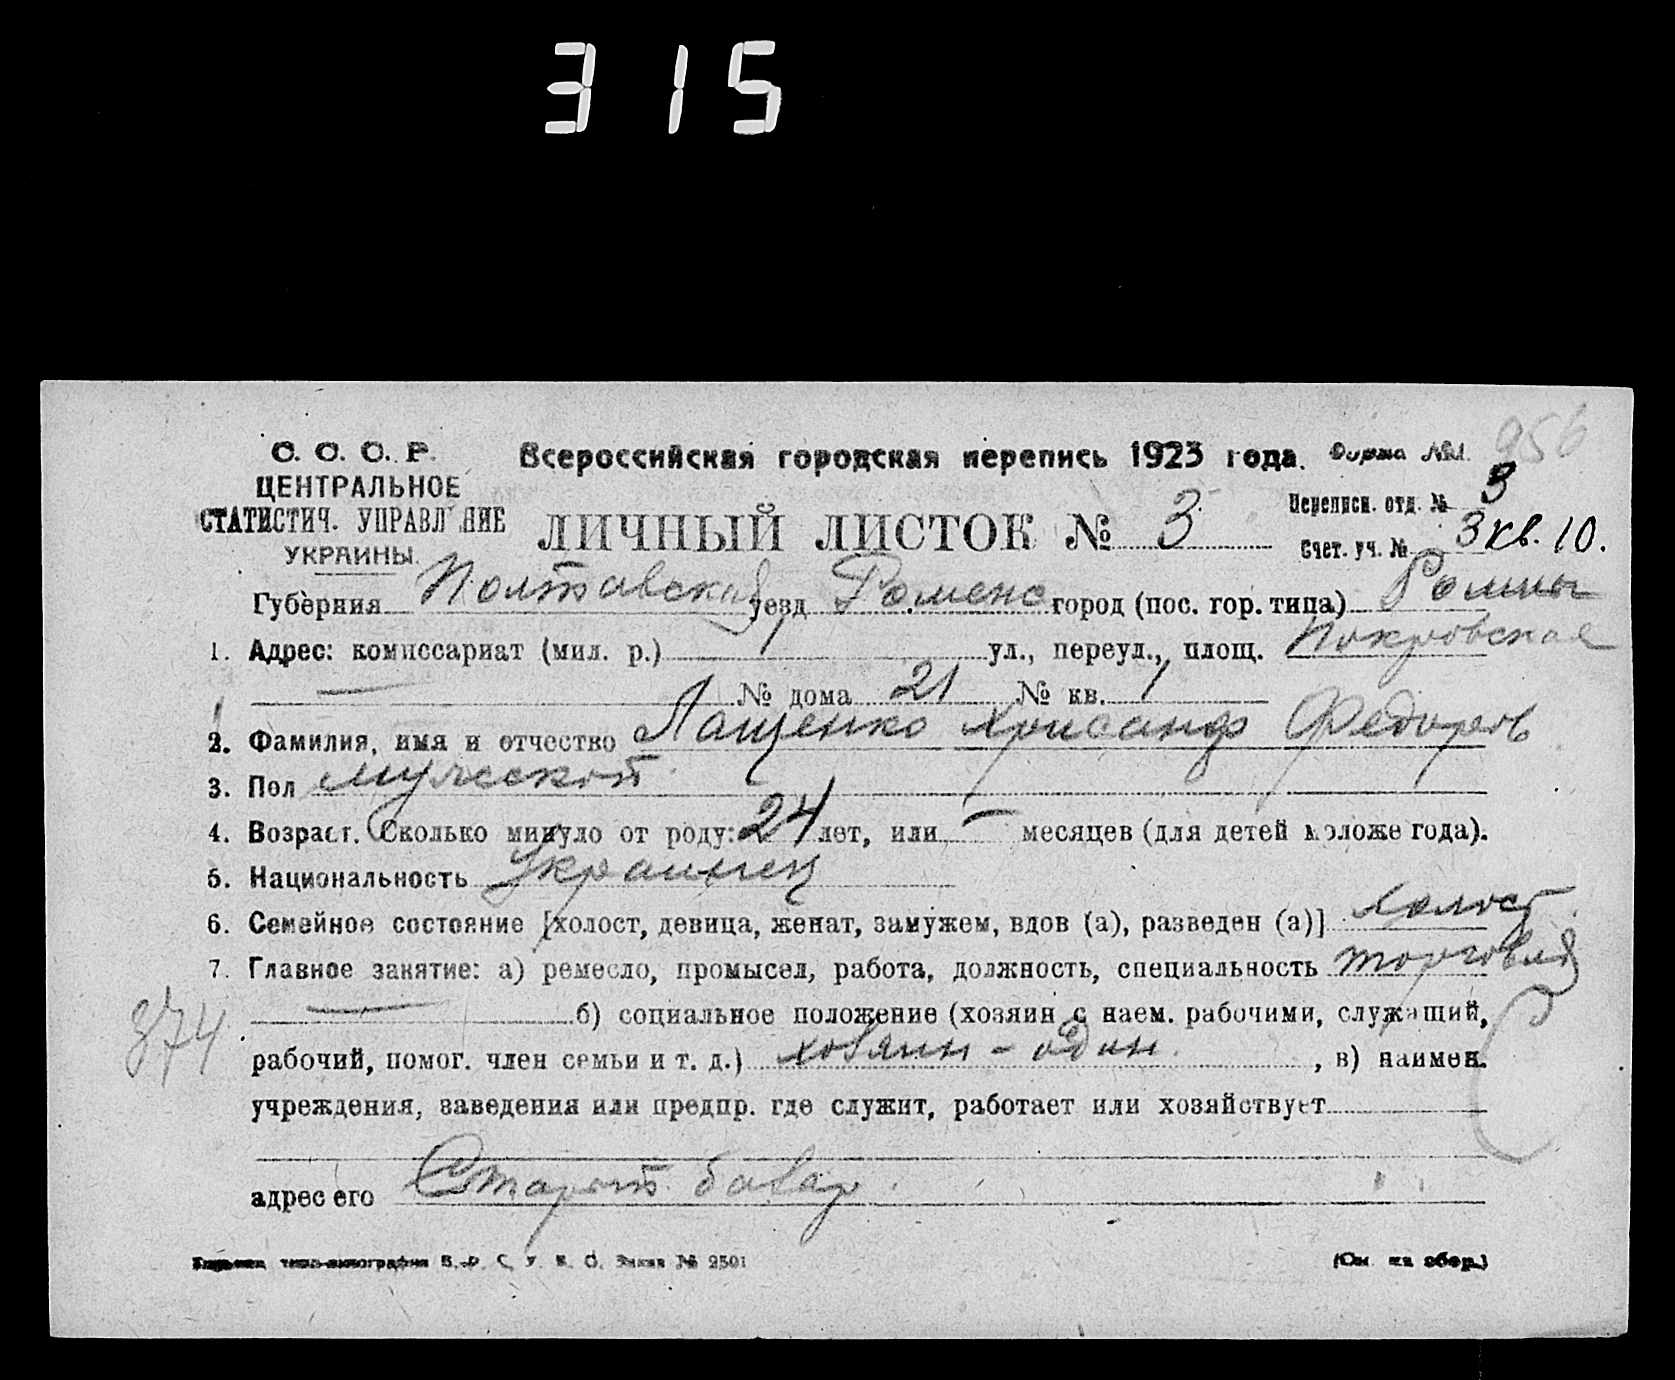 315
956
С. С. С. Р.
ЦЕНТРАЛЬНОЕ
СТАТИСТИЧ. УПРАВЛЕНИЕ
УКРАИНЫ.
Всероссийская городская перепись 1923 года. Форма №1.
ЛИЧНЫЙ ЛИСТОК № 3
Переписн. отд. № 3
Счет. уч. № 3 кв. 10.
Губерния Полтавская уезд Роменс город (пос. гор. типа) Ромны
1. Адрес: комиссариат (мил. р.) ул., переул., площ. Покровская
№ дома 21 № кв. 1
2. Фамилия, имя и отчество Лащенко Хрисанф Федоров
3. Пол мужской
4. Возраст. Сколько минуло от роду: 24 лет, или — месяцев (для детей моложе года).
5. Национальность Украинец
6. Семейное состояние [холост, девица, женат, замужем, вдов (а), разведен (а)] холост
7. Главное занятие: а) ремесло, промысел, работа, должность, специальность торговля
б) социальное положение (хозяин с наем. рабочими, служащий,
374
рабочий, помог. член семьи и т. д.) хозяин - один , в) наимен.
учреждения, заведения или предпр. где служит, работает или хозяйствует
адрес его Старый базар.
(См. на обор.)